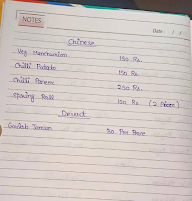 NOTES
Date: / /
Chinese
Veg Manchurian 150 Rs.
Chilli Potato 150 Rs.
Chilli Paneer 250 Rs.
Spring Roll 120 Rs. (2 Pieces)
Desert
Gulab Jamun 20 Per Piece